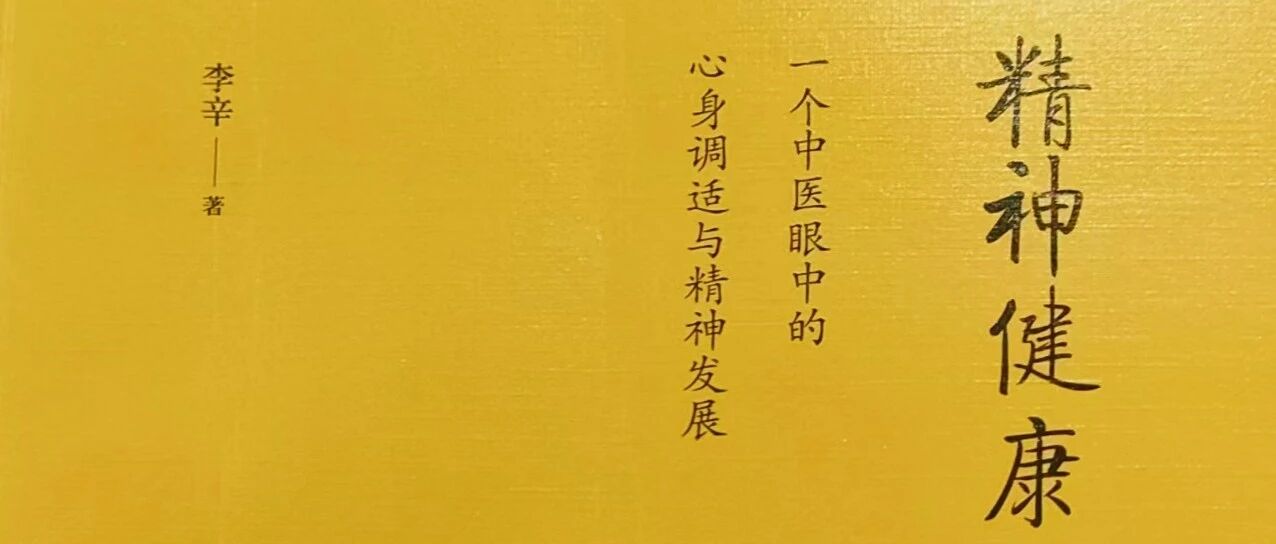 精神健康
一个中医眼中的
心身调适与精神发展
李辛——著